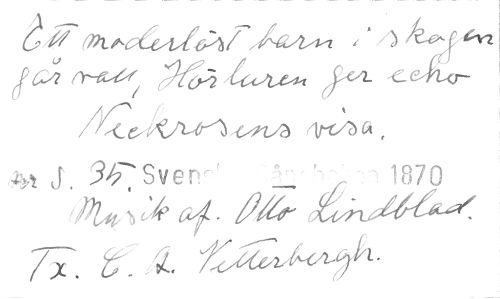 Ett moderlöst barn i skogen
går vall, Hör luren ger echo
Neckrosens visa.
nr S. 35. Svensk Sångboken 1870
Musik af. Otto Lindblad.
Tx. C. A. Vetterbergh.